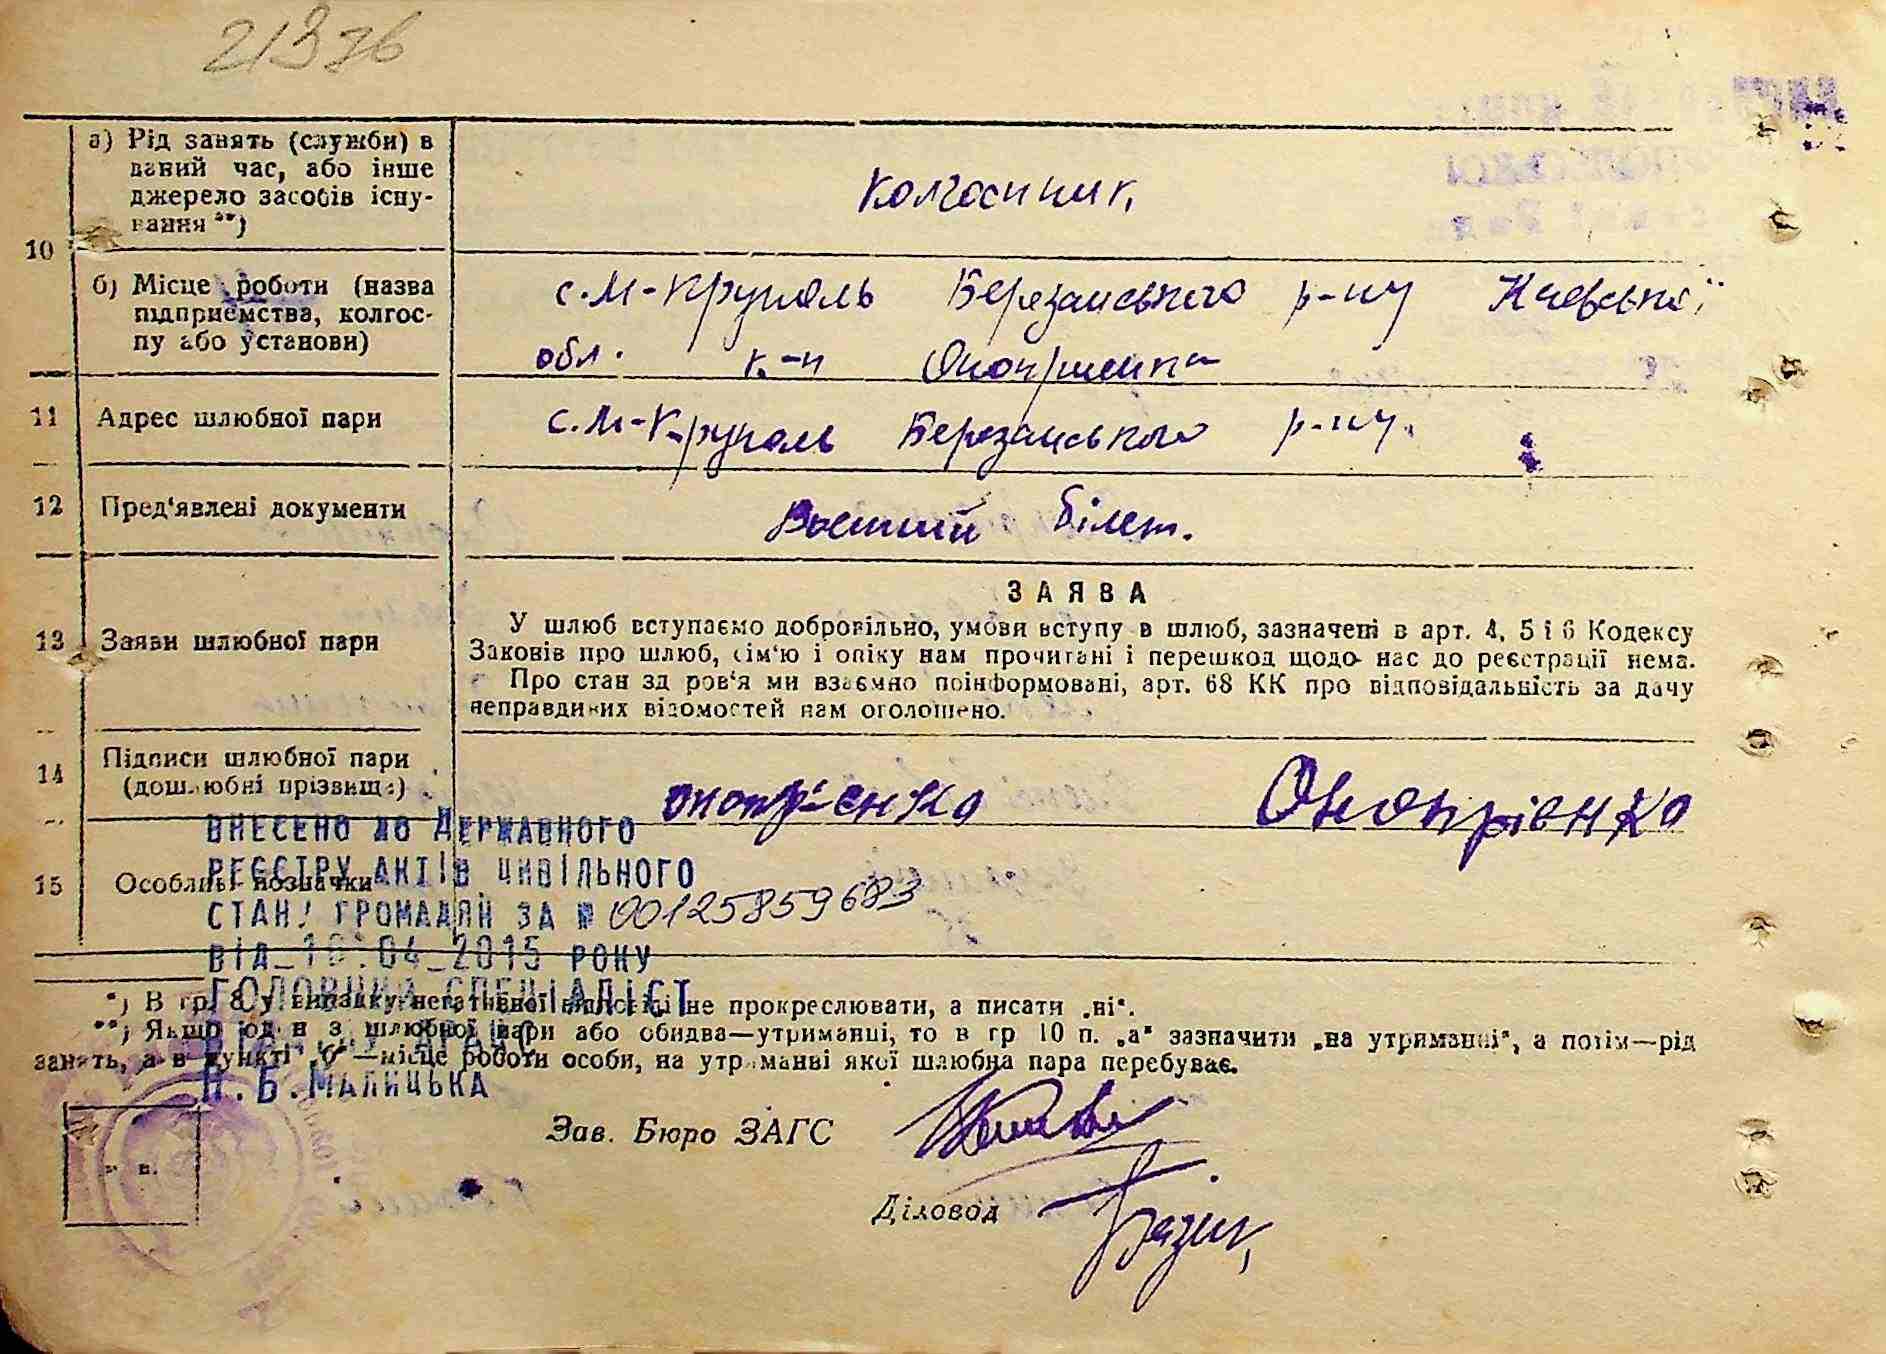 21376
а) Рід занять (служби) в
даний час, або інше
джерело засобів існу-
вання **)
колгоспник.
10
б) Місце роботи (назва
підприємства, колгос-
пу або установи)
с. М-Круполь Березанського р-ну Київської
обл. к-п Онопрієнко
11 Адрес шлюбної пари
с. М-Круполь Березанського р-ну.
12 Пред'явлені документи
Воєнний білет.
ЗАЯВА
13 Заяви шлюбної пари
У шлюб вступаємо добровільно, умови вступу в шлюб, зазначені в арт. 4, 5 і 6 Кодексу
Законів про шлюб, сім'ю і опіку нам прочитані і перешкод щодо нас до реєстрації нема.
Про стан здоров'я ми взаємно поінформовані, арт. 68 КК про відповідальність за дачу
неправдивих відомостей нам оголошено.
14 Підписи шлюбної пари
(дошлюбні прізвища)
онопрієнко Онопрієнко
ВНЕСЕНО ДО ДЕРЖАВНОГО
РЕЄСТРУ АКТІВ ЦИВІЛЬНОГО
15 Особливі позначки
СТАНУ ГРОМАДЯН ЗА № 00125859683
ВІД 10.04.2015 РОКУ
ГОЛОВНИЙ СПЕЦІАЛІСТ
*) В гр. 8 у випадку негативної відповіді не прокреслювати, а писати „ні“.
**) Якщо один з шлюбної пари або обидва—утриманці, то в гр 10 п. „а“ зазначити „на утриманні“, а потім—рід
занять, а в пункті „б“—місце роботи особи, на утриманні якої шлюбна пара перебуває.
Н.Б.МАЛИЦЬКА
Зав. Бюро ЗАГС
Діловод